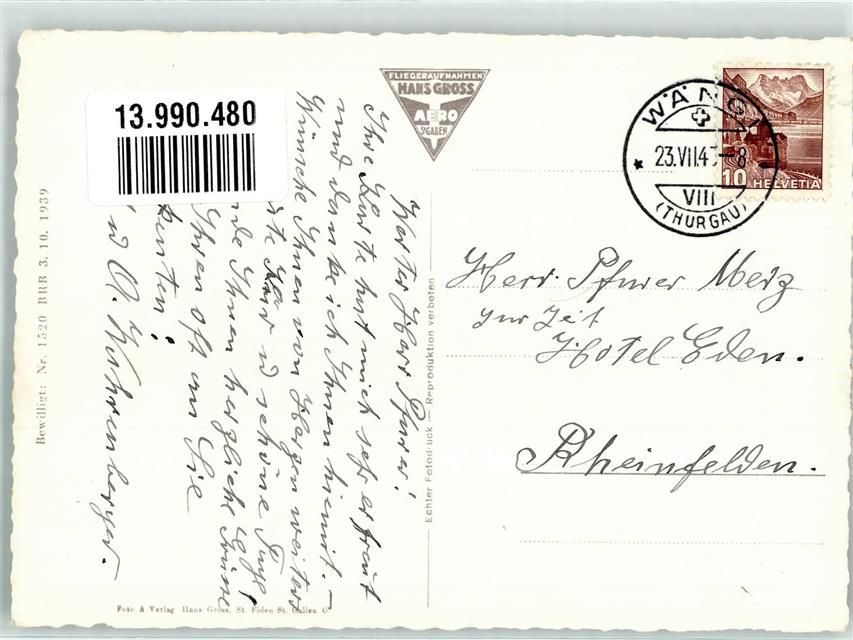 13.990.480
FLIEGERAUFNAHMEN
HANS GROSS
AERO
ST.GADEN
WÄNGI
23.VII.4 -8
VIII
(THURGAU)
10 HELVETIA
Bewilligt: Nr. 1520 BRB 3. 10. 1939
Werter Herr Pfarrer!
Ihre Karte hat mich sehr erfreut
und danke ich Ihnen hiemit.
Wünsche Ihnen von Herzen weiters
Kur u schöne Tage!
Ihnen herzliche Grüsse
Ihren oft an Sie
A. Wohrenberger.
Echter Fotodruck — Reproduktion verboten
Herr Pfarrer Merz
zur Zeit
Hotel Eden.
Rheinfelden.
Foto & Verlag Hans Gross, St. Fiden-St. Gallen O